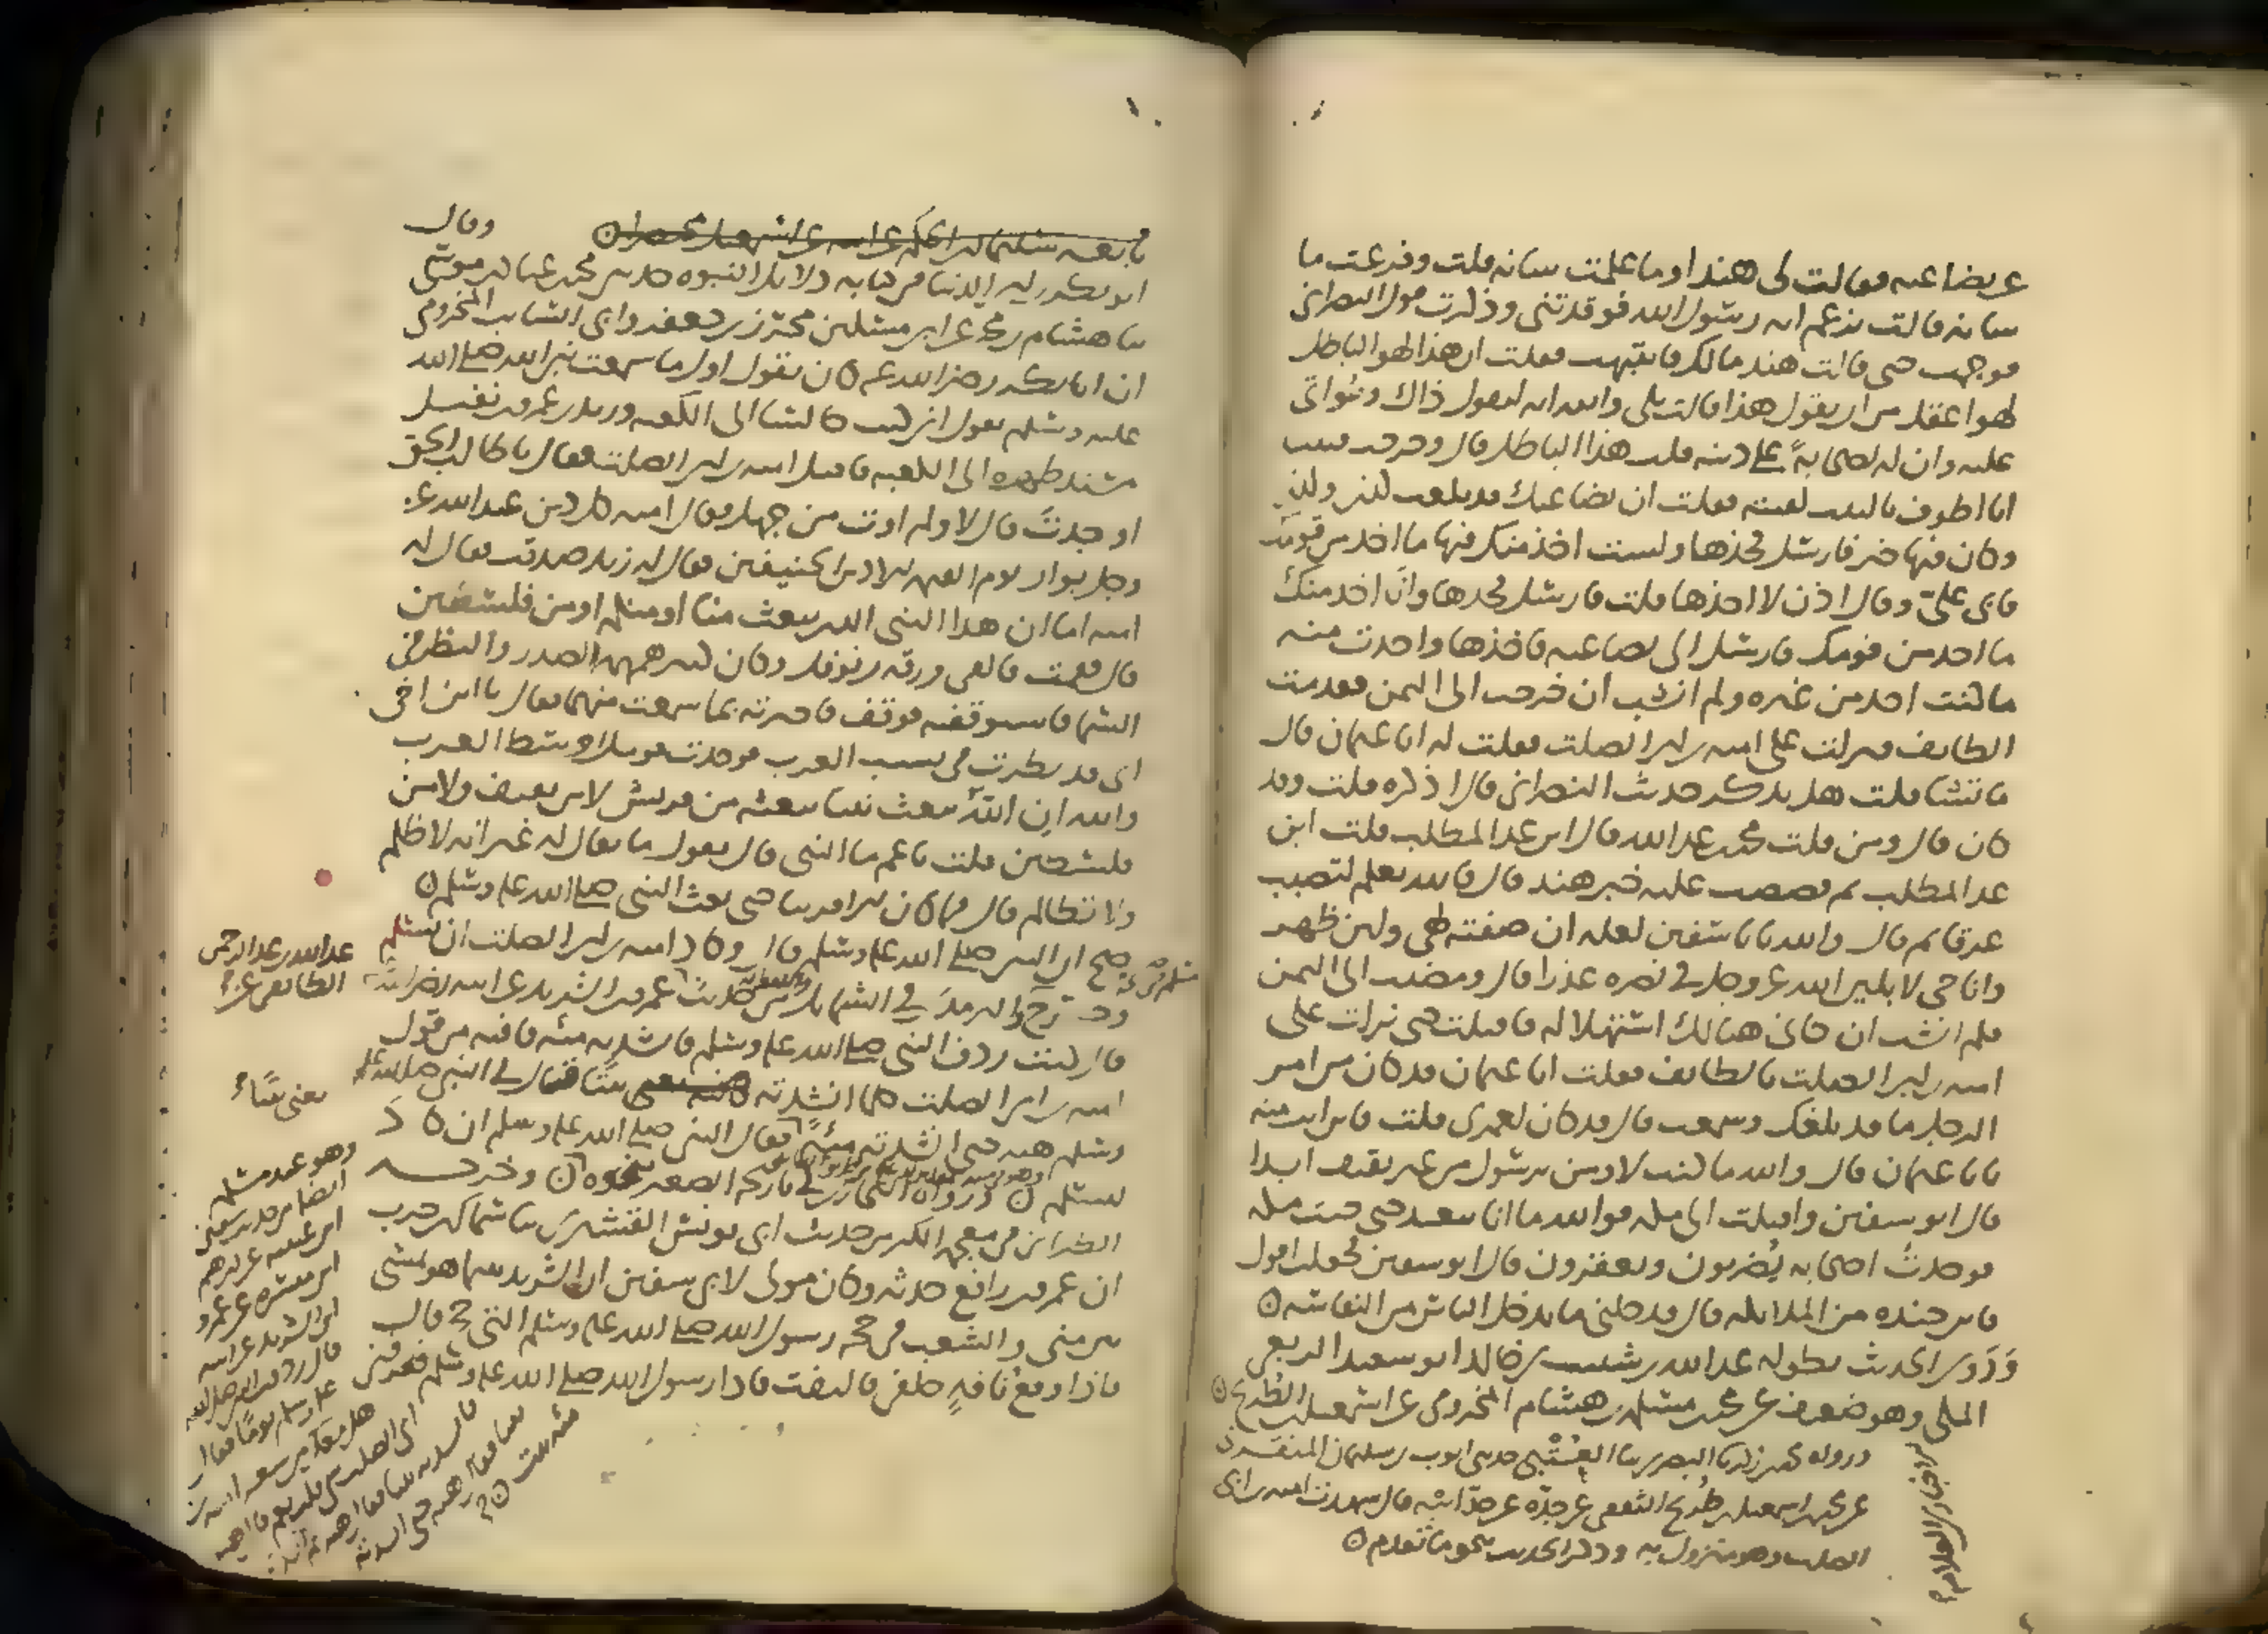 عن بضاعته فقالت لي هند او ما علمت شانه قلت وفزعت ما
شانه قالت يزعم انه رسول الله فوقذتني وذكرت قول النصراني
فوجمت حتى قالت هند مالك فانتبهت فقلت ان هذا لهو الباطل
لهو اعقل من ان يقول هذا قالت بلى والله انه ليقول ذاك ويُواتى
عليه وان له لصحابةً على دينه قلت هذا الباطل قال وخرجت فبينا
انا اطوف بالبيت لقيته فقلت ان بضاعتك قد بلغت كذا وكذا
وكان فيها خير فارسل فخذها ولست اخذ منك فيها ما اخذ من قومك
فابى علي وقال اذن لا اخذها قلت فارسل فخذها وانا اخذ منك
ما اخذ من قومك فارسل الى بضاعته فاخذها واخذت منه
ما كنت اخذ من غيره ولم انشب ان خرجت الى اليمن فقدمت
الطايف فنزلت على اميه بن ابي الصلت فقلت له ابا عثمان قال
ما تشا قلت هل تذكر حديث النصراني قال اذكره قلت وقد
كان قال ومن قلت محمد بن عبد الله قال ابن عبد المطلب قلت ابن
عبد المطلب ثم قصصت عليه خبر هند قال فالله يعلم لتصبب
عرقا ثم قال والله يا با سفين لعله ان صفته لهي ولئن ظهر
وانا حي لابلين الله عز وجل في نصره عذرا قال ومضيت الى اليمن
فلم انشب ان جاني هنالك استهلاله فاقبلت حتى نزلت على
اميه بن ابي الصلت بالطايف فقلت ابا عثمان قد كان من امر
الرجل ما قد بلغك وسمعت قال قد كان لعمري قلت فاين انت منه
يا با عثمان قال والله ما كنت لاومن برسول من غير ثقيف ابدا
قال ابو سفين واقبلت الى مكه فوالله ما انا ببعيد حتى جيت مكه
فوجدت اصحابه يُضربون ويعقرون قال ابو سفين فجعلت اقول
فاين جنده من الملايكه قال فدخلني ما يدخل الناس من النفاسه
ورَوى الحديث بطوله عبد الله بن شبيب بن خالد ابو سعيد الربعي
المكي وهو ضعيف عن محمد بن مسلمه بن هشام المخزومي عن اسمعيل بن الطريح
ورواه محمد بن زكريا البصري نا العُتبي حدثني ايوب بن سليمان
عن محمد بن اسمعيل بن طريح الثقفي عن جده عن جد ابيه قال شهدت اميه بن ابي
الصلت وهو منزول به وذكر الحديث بنحو ما تقدم
تابعه سليمان بن الحكم عن ابيه عن اسمعيل مختصرا
وقال
ابو بكر بن ابي الدنيا في كتابه دلايل النبوه حدثني محمد بن عباد بن موسى
نا هشام بن محمد عن ابي مسكين محرز بن جعفر وابي السايب المخزومي
ان ابا بكر رضي الله عنه كان يقول اول ما سمعت بنبي الله صلى الله
عليه وسلم يقول اني كنت جالسا الى الكعبه وزيد بن عمرو بن نفيل
مسند ظهره الى الكعبه فاقبل اميه بن ابي الصلت فقال يا طالب الحق
او جدتَ قال لا ولم اوت من جهل فقال اميه كل دين عبد الله عز
وجل بوار يوم القيمه الا دين الحنيفيين فقال له زيد صدقت فقال له
اميه اما ان هذا النبي الذي يبعث منا او منكم او من فلسطين
قال فقمت فالقى ورقه بن نوفل وكان كثير همهمه الصدر والنظر في
السما فاستوقفته فوقف فاخبرته بما سمعت منهما فقال يا ابن اخي
اني قد نظرت في نسب العرب فوجدت قومك اوسط العرب
والله ان الله يبعث نبيا يبعثه من قريش لا من ثقيف ولا من
فلسطين قلت يا عم ما النبي قال يقول ما يقال له غير انه لا ظلم
ولا تظالم قال فما كان بي امرنا حتى بعث النبي صلى الله عليه وسلم
صح ان النبي صلى الله عليه وسلم قال وكاد اميه بن ابي الصلت ان يسلم
الترمذي في الشمايل من حديث عمرو بن الشريد عن ابيه رضي الله عنه
عبد الله بن عبد الرحمن
الطايفي عن
قال كنت ردف النبي صلى الله عليه وسلم فانشدته مئه قافيه من قول
اميه بن ابي الصلت كلما انشدته بيتًا قال لي النبي صلى الله عليه
يعني بيتًا
وسلم هيه حتى انشدته مئةً فقال النبي صلى الله عليه وسلم ان كاد
ليسلم ورواه البخاري في تاريخه الصغير بنحوه وخرجه
الطبراني في معجمه الكبير من حديث ابي يونس القشيري نا سماك بن حرب
ان عمرو بن رافع حدثه وكان مولى لابي سفين ان الشريد بينما هو يمشي
بين منى والشعب في حجة رسول الله صلى الله عليه وسلم التي حج قال
فاذا وقعُ ناقةٍ خلفي فالتفت فاذا رسول الله صلى الله عليه وسلم فعرفني
وهو عند مسلم
ايضا من حديث سفين
ابن عيينه عن ابرهيم
ابن ميسره عن عمرو
ابن الشريد عن ابيه
قال ردفت رسول الله
عليه وسلم يوما فقال
هل معك من شعر اميه بن
ابي الصلت شي قلت نعم قال هيه
فانشدته بيتا فقال هيه ثم انشدته
بيتا فقال هيه حتى انشدته
مئه بيت